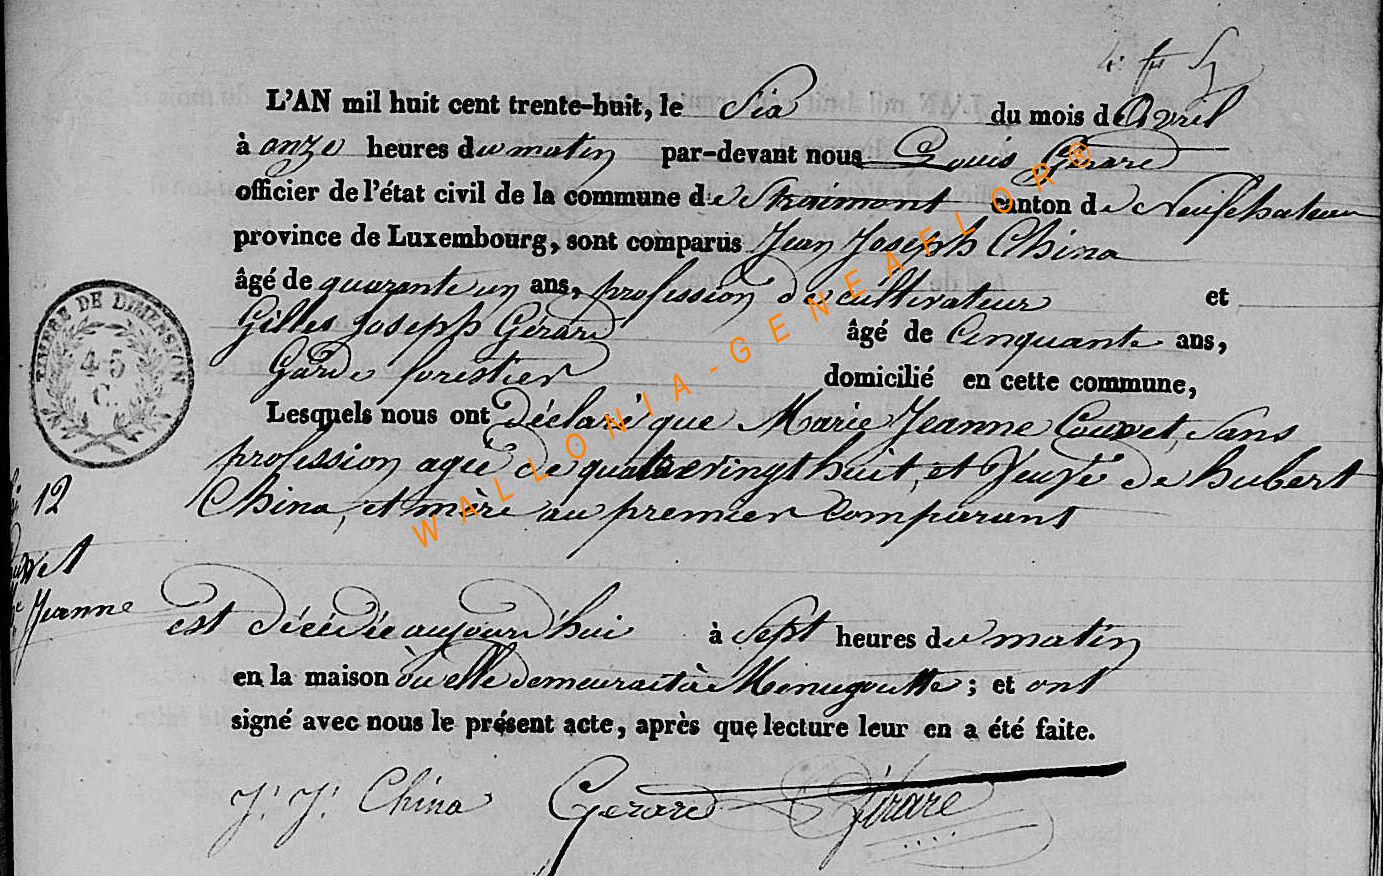 L'AN mil huit cent trente-huit, le Six du mois d'Avril
à onze heures du matin par-devant nous Louis Gérard
officier de l'état civil de la commune de Straimont canton de Neufchateau
province de Luxembourg, sont comparus Jean Joseph China
âgé de quarante un ans, profession de cultivateur et
Gilles Joseph Gérard âgé de Cinquante ans,
Garde forestier domicilié en cette commune,
Lesquels nous ont déclaré que Marie Jeanne Couvet, Sans
profession agée de quatrevingt huit, et Veuve de hubert
China, et mère au premier Comparant
TIMBRE DE DIMENSION
45
C.
N° 12
Jeanne
est décédée aujourd'hui à Sept heures du matin
en la maison où elle demeurait à Menugoutte; et ont
signé avec nous le présent acte, après que lecture leur en a été faite.
J. J. China Gerard Gérard
WALLONIA-GENEAFLOR®